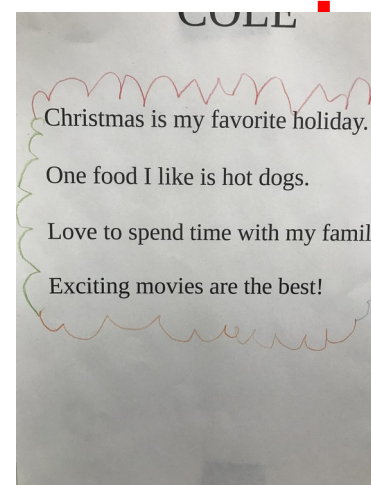 COLE
Christmas is my favorite holiday.
One food I like is hot dogs.
Love to spend time with my famil
Exciting movies are the best!